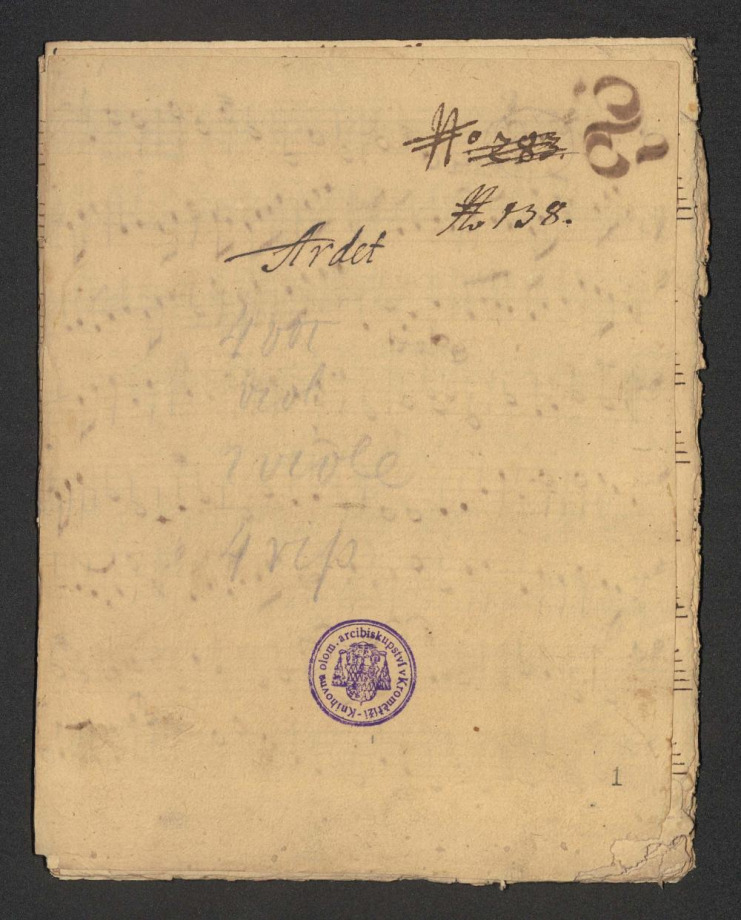 No 283.
No 138.
Ardet
4 voc
violi
viole
4 rip
Knihovna olom. arcibiskupství v Kroměříži -
1